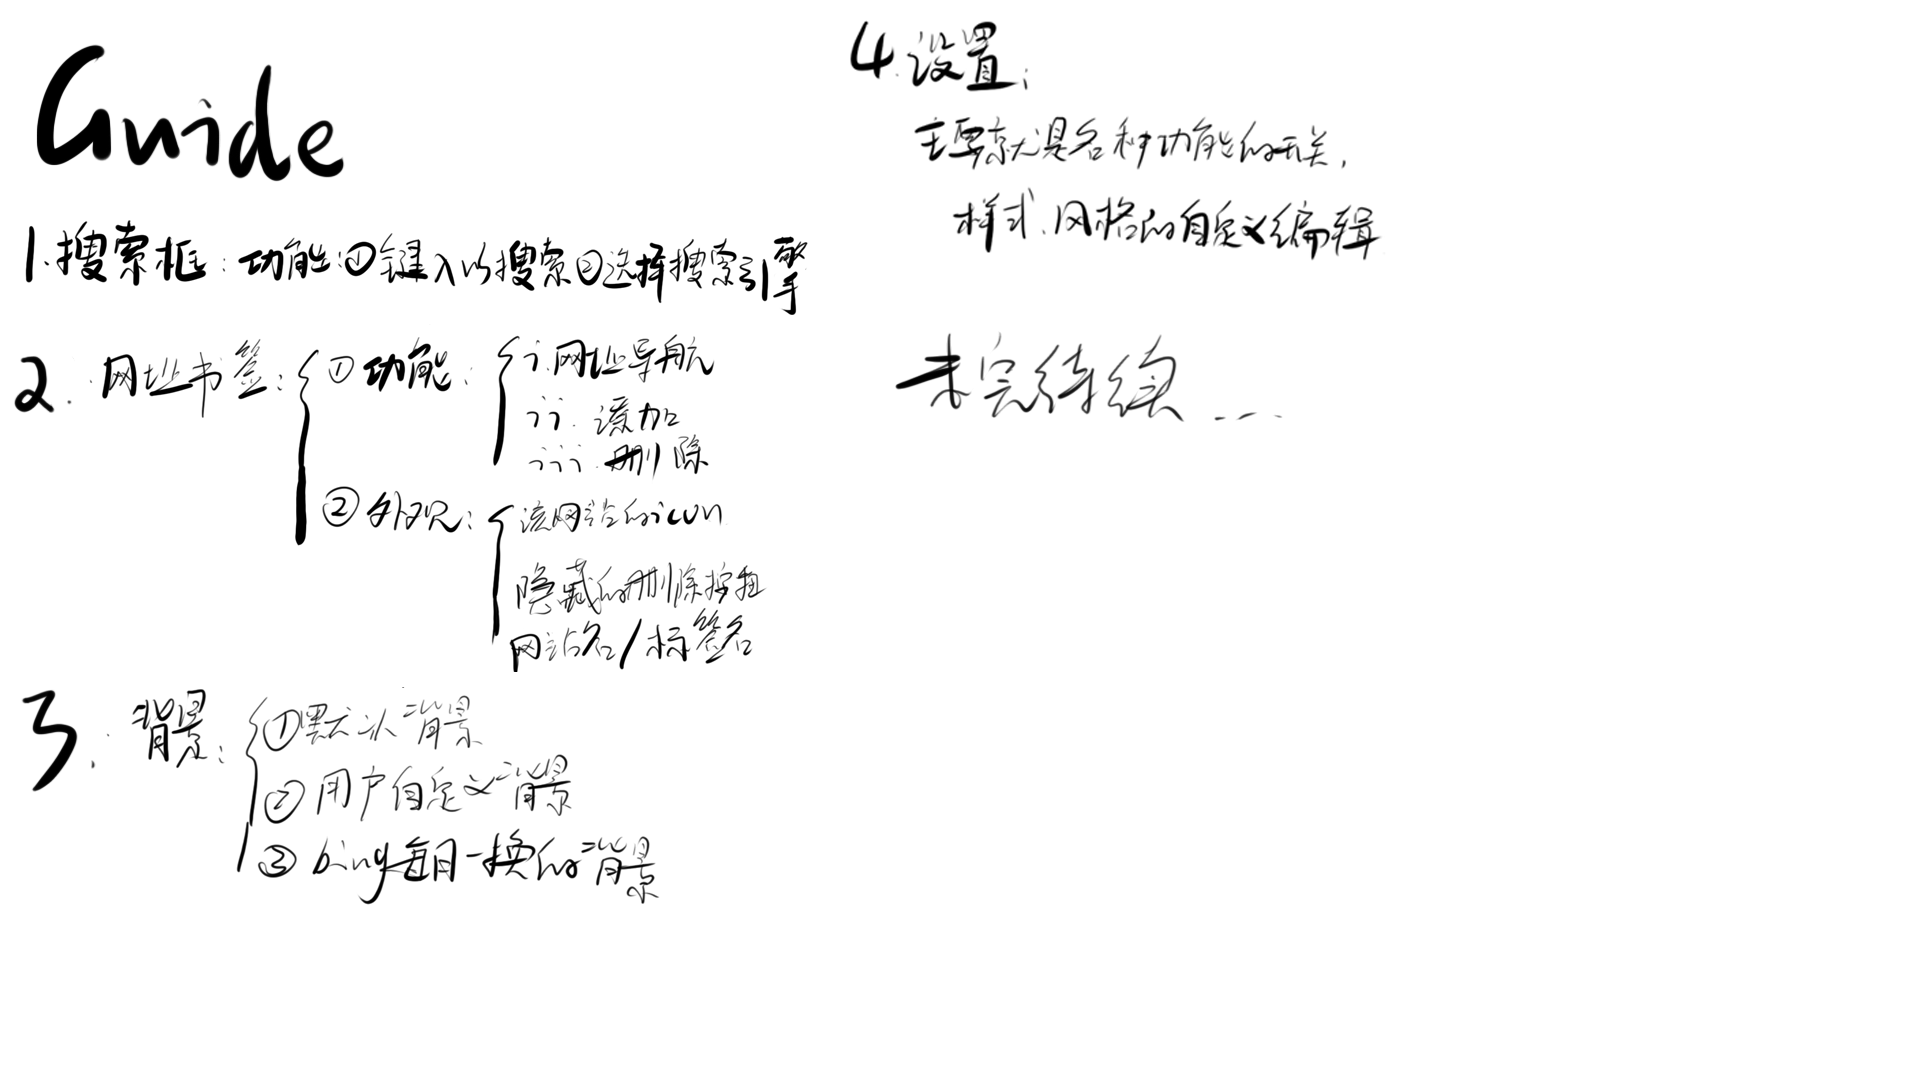 Guide
1.搜索框:功能:①键入以搜索②选择搜索引擎
2.网址书签:
①功能:
i.网址导航
ii.添加
iii.删除
②外观:
该网站的icon
隐藏的删除按钮
网站名/标签名
3.背景:
①默认背景
②用户自定义背景
③bing每日一换的背景
4.设置:
主要就是各种功能的开关,
样式、风格的自定义编辑
未完待续...